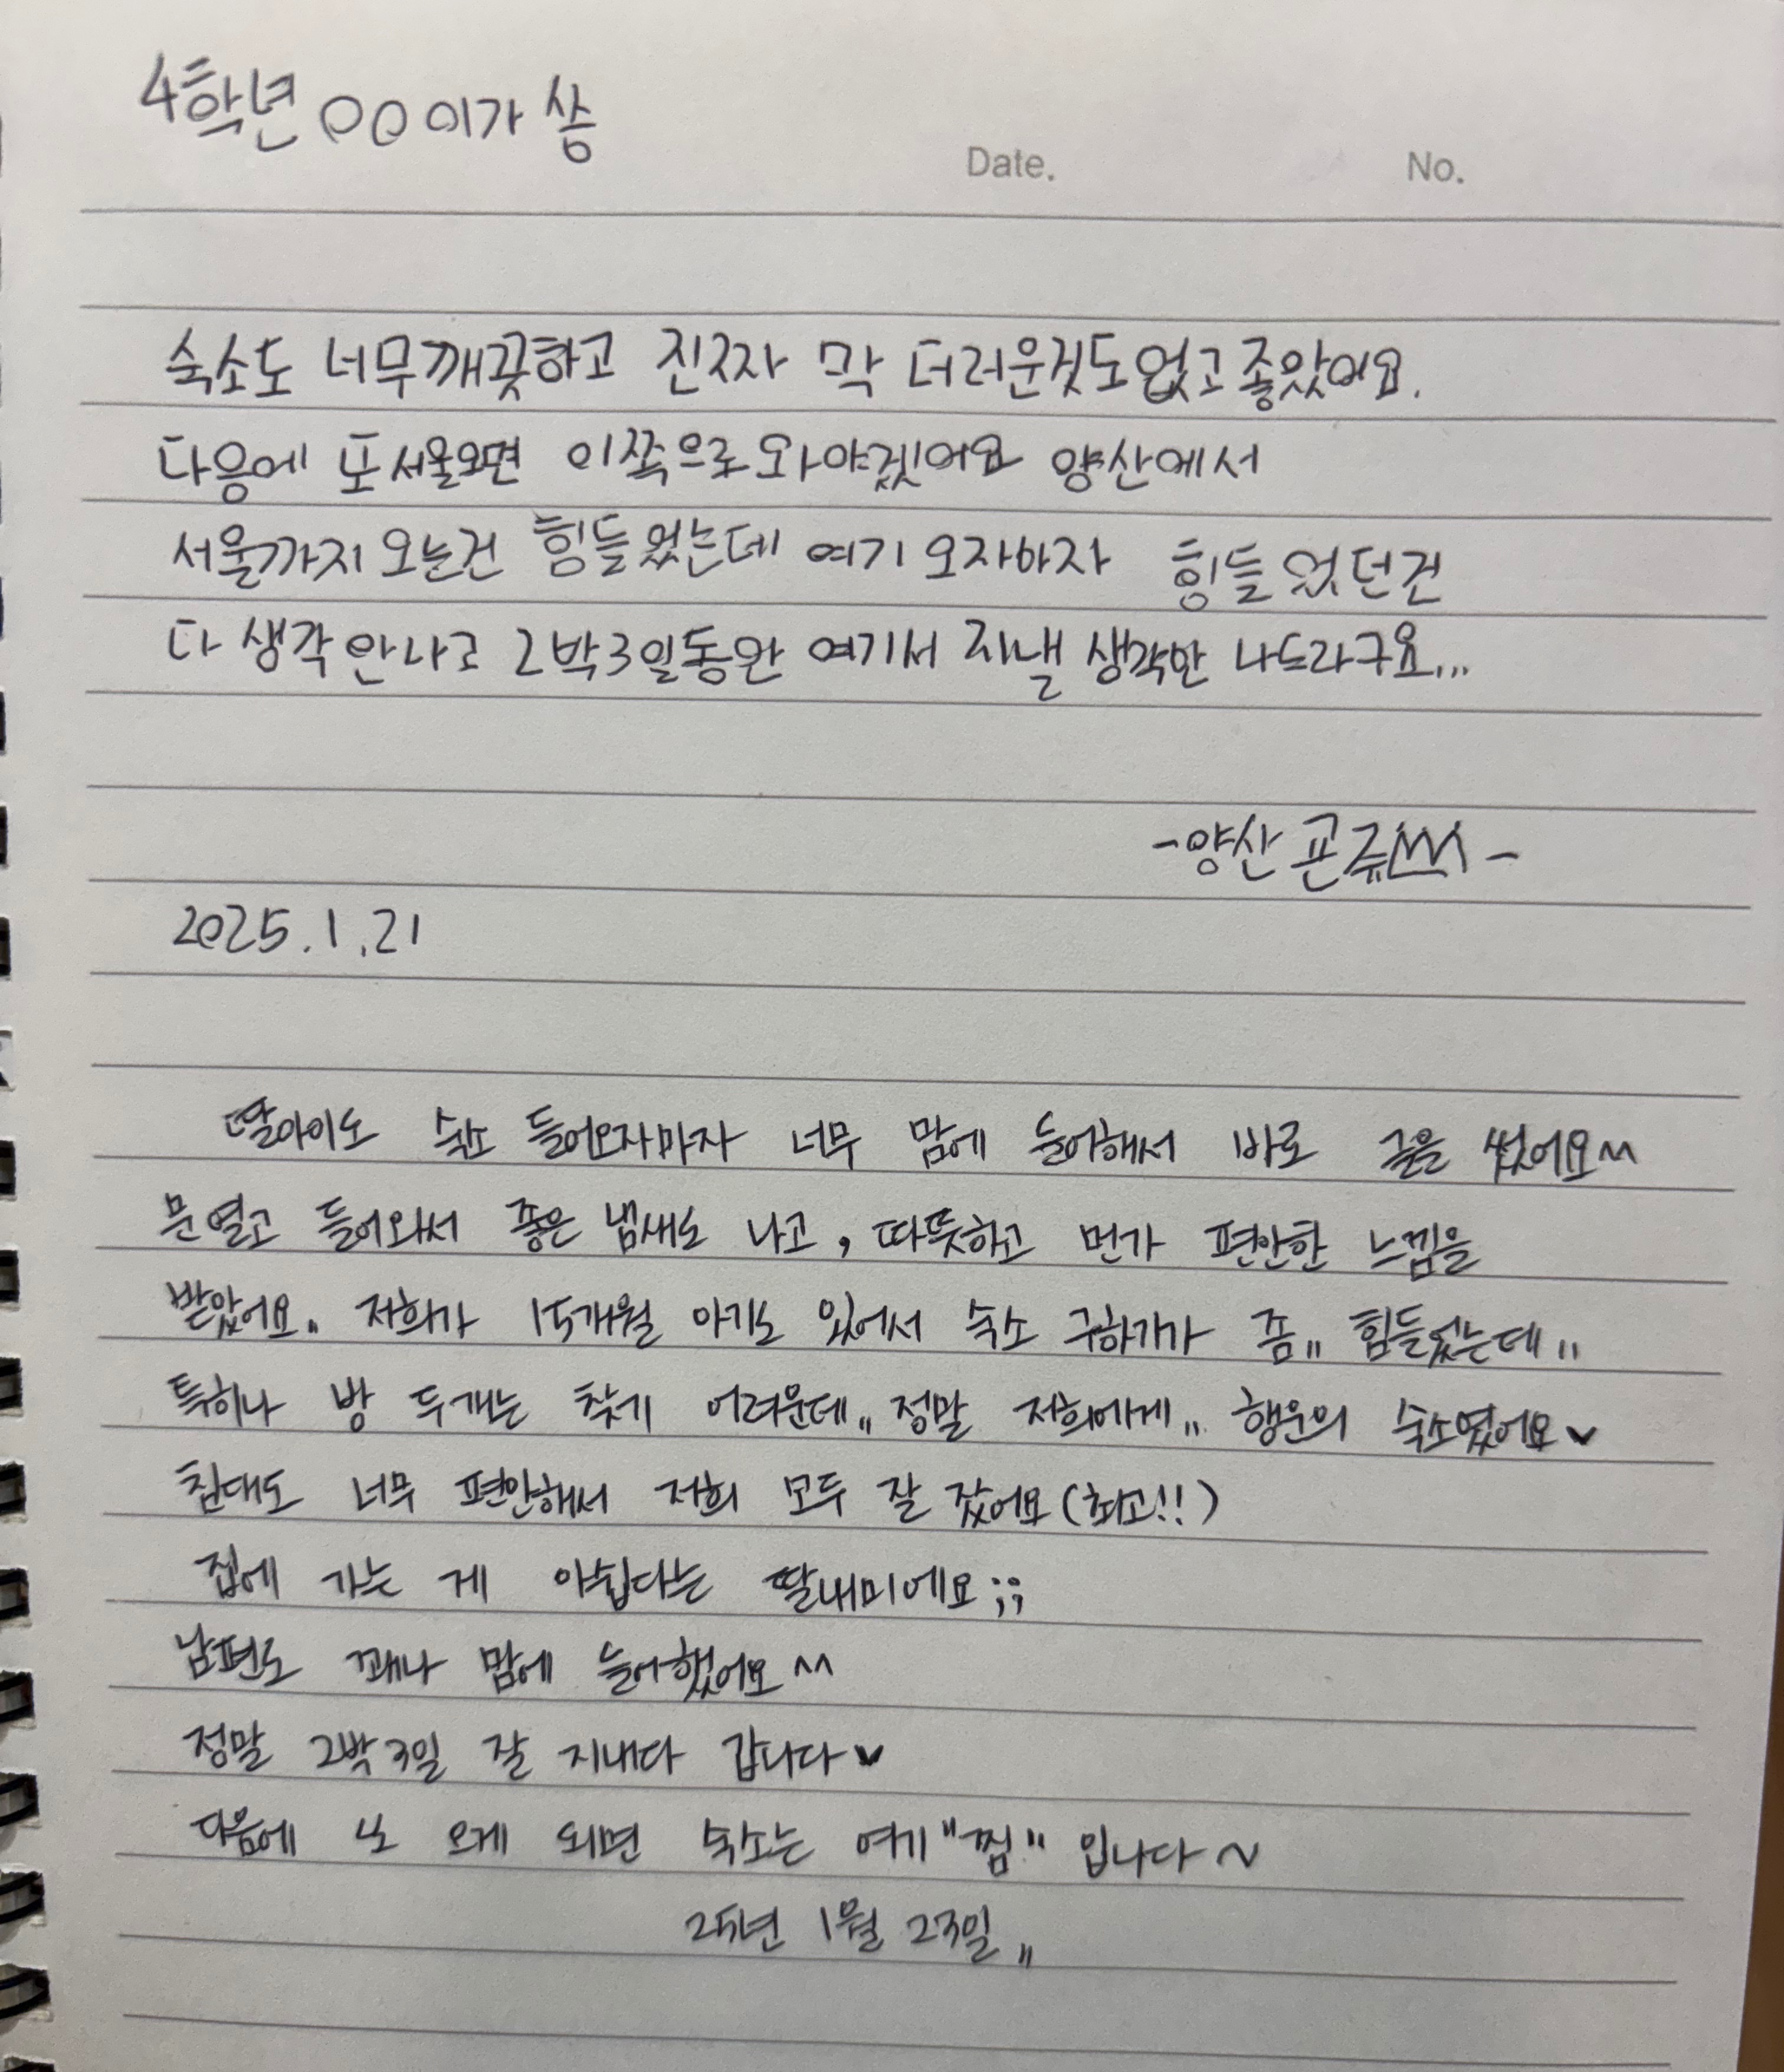 4학년 OO이가 씀
Date. No.
숙소도 너무깨끗하고 진짜 막 더러운것도없고좋았어요.
다음에 또서울오면 이쪽으로와야겠어요 양산에서
서울까지오는건 힘들었는데 여기 오자마자 힘들었던건
다 생각안나고 2박3일동안 여기서 지낼 생각만 나드라구요...
-양산
2025.1.21
딸아이도 숙소 들어오자마자 너무 맘에 들어해서 바로 글을 썼어요^^
문 열고 들어와서 좋은 냄새도 나고, 따뜻하고 먼가 편안한 느낌을
받았어요.. 저희가 15개월 아기도 있어서 숙소 구하기가 좀.. 힘들었는데..
특히나 방 두개는 찾기 어려운데.. 정말 저희에게.. 행운의 숙소였어요♥
침대도 너무 편안해서 저희 모두 잘 잤어요(최고!!)
집에 가는 게 아쉽다는 딸내미에요;;
남편도 꽤나 맘에 들어했어요^^
정말 2박3일 잘 지내다 갑니다♥
다음에 또 오게 되면 숙소는 여기"찜"입니다~
25년 1월 23일..